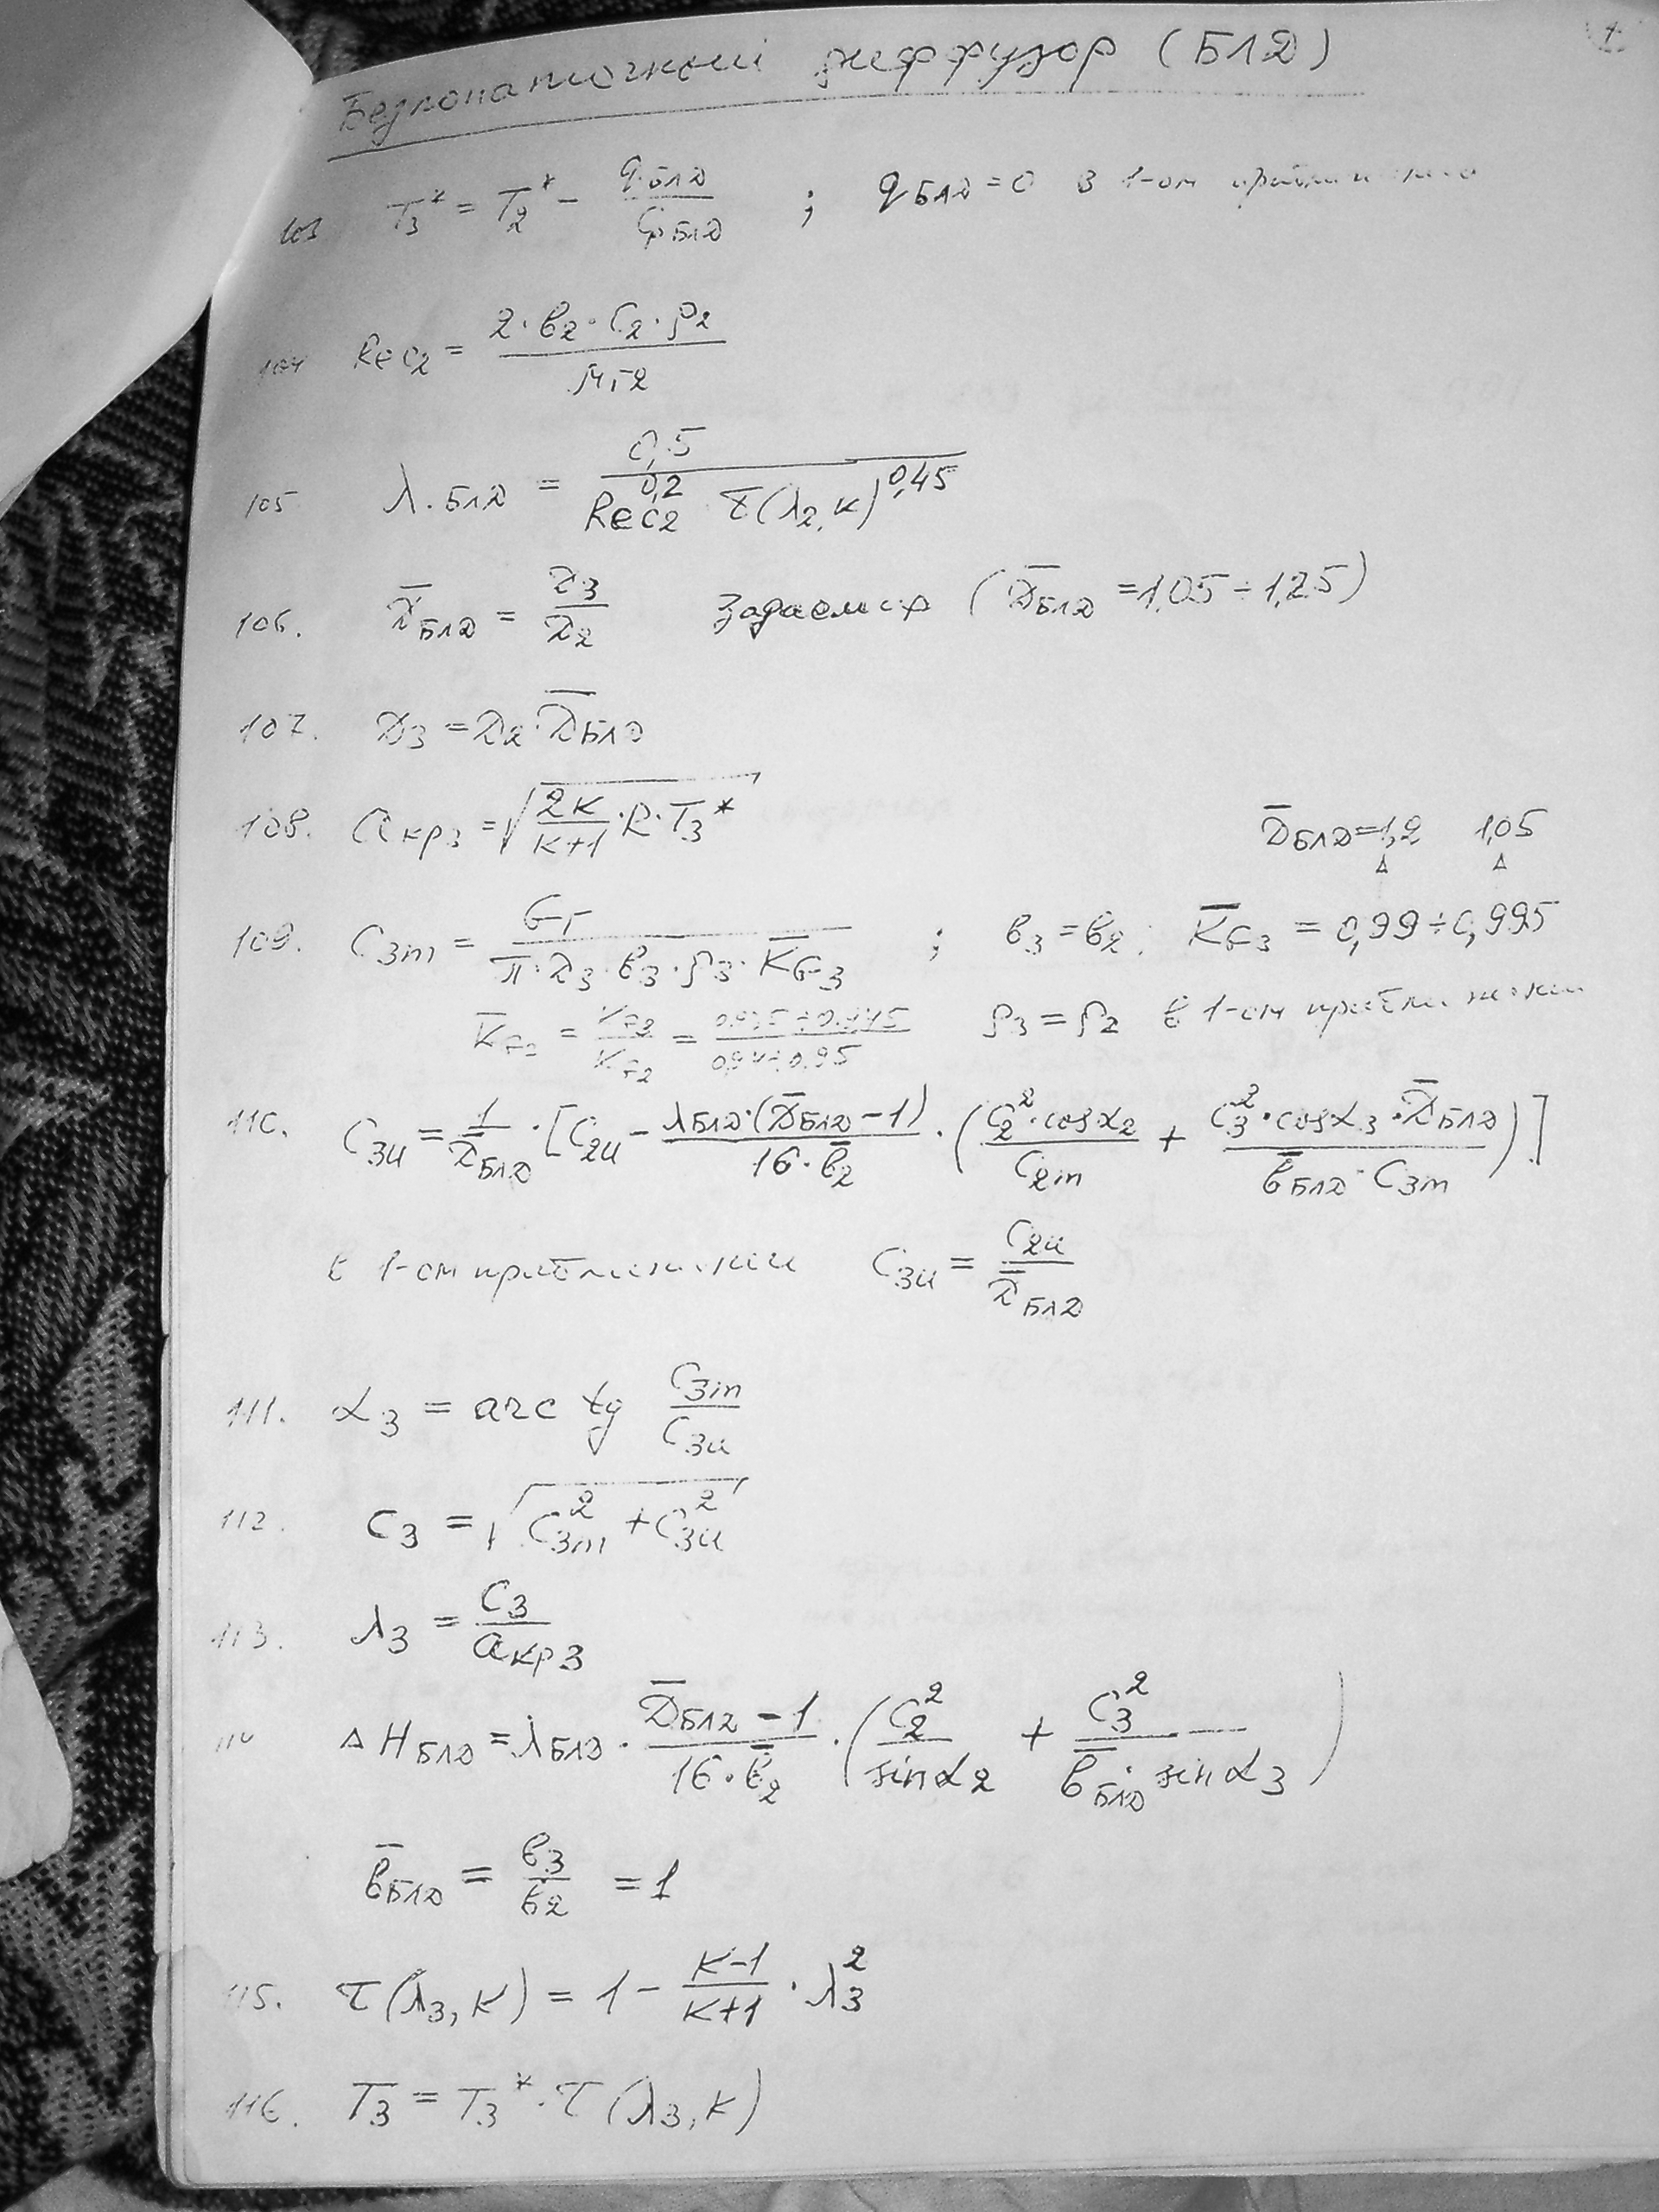 Безлопаточный диффузор (БЛД)
103 T₃* = T₂* - q.БЛД / CpБЛД ; qБЛД = 0 в 1-ом приближении
104 Reс₂ = 2·в₂·C₂·ρ₂ / μг2
105 λ.БЛД = 0,5 / Reс₂^0,2 τ(λ₂,к)^0,45
106. D̄БЛД = D₃ / D₂ Задаемся (D̄БЛД = 1,05 ÷ 1,25)
107. D₃ = D₂·D̄БЛД
108. aкр₃ = √(2к / к+1 · R·T₃*)
D̄БЛД = 1,2 1,05
109. C₃m = Gг / π·D₃·в₃·ρ₃·K̄G3 ; в₃ = в₂; K̄G3 = 0,99 ÷ 0,995
ρ₃ = ρ₂ в 1-ом приближении
110. C₃u = 1 / D̄БЛД · [C₂u - λБЛД·(D̄БЛД - 1) / 16·в̄₂ · (C₂²·cosα₂ / C₂m + C₃²·cosα₃·D̄БЛД / в̄БЛД·C₃m)]
в 1-ом приближении C₃u = C₂u / D̄БЛД
111. α₃ = arc tg C₃m / C₃u
112. C₃ = √(C₃m² + C₃u²)
113. λ₃ = C₃ / aкр3
114 ΔHБЛД = λБЛД · D̄БЛД - 1 / 16·в̄₂ · (C₂² / sinα₂ + C₃² / в̄БЛД·sinα₃)
в̄БЛД = в₃ / в₂ = 1
115. τ(λ₃,к) = 1 - к-1 / к+1 · λ₃²
116. T₃ = T₃*·τ(λ₃,к)